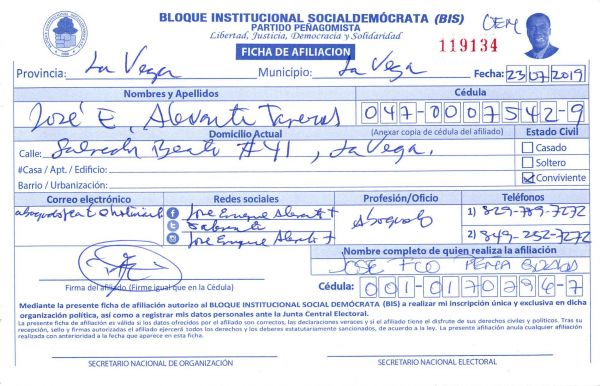 BLOQUE INSTITUCIONAL SOCIALDEMÓCRATA (BIS)
PARTIDO PEÑAGOMISTA
Libertad, Justicia, Democracia y Solidaridad
FICHA DE AFILIACION
119134
Provincia: La Vega Municipio: La Vega Fecha: 23/07/2019
Nombres y Apellidos
Cédula
José E. Abreu Taveras
047-0007542-9
Domicilio Actual
(Anexar copia de cédula del afiliado)
Estado Civil
Calle: #41, La Vega.
Casado
#Casa / Apt. / Edificio:
Soltero
Barrio / Urbanización:
Conviviente
Correo electrónico
Redes sociales
Profesión/Oficio
Teléfonos
Jose Enrique
Abogado
1) 829-789-7272
Jose Enrique
2) 849-252-7272
Nombre completo de quien realiza la afiliación
JOSE FCO PEÑA
Firma del afiliado (Firme igual que en la Cédula)
Cédula: 001-0170296-7
Mediante la presente ficha de afiliación autorizo al BLOQUE INSTITUCIONAL SOCIAL DEMÓCRATA (BIS) a realizar mi inscripción única y exclusiva en dicha
organización política, así como a registrar mis datos personales ante la Junta Central Electoral.
La presente ficha de afiliación es válida si los datos ofrecidos por el afiliado son correctos, las declaraciones veraces y si el afiliado tiene el disfrute de sus derechos civiles y políticos. Tras su
recepción, sello y firmas autorizadas el afiliado ejercerá todos los derechos y los deberes estatutariamente sancionados, de acuerdo a la ley. La presente afiliación anula cualquier afiliación
realizada con anterioridad a la fecha que aparece en esta ficha.
SECRETARIO NACIONAL DE ORGANIZACIÓN
SECRETARIO NACIONAL ELECTORAL